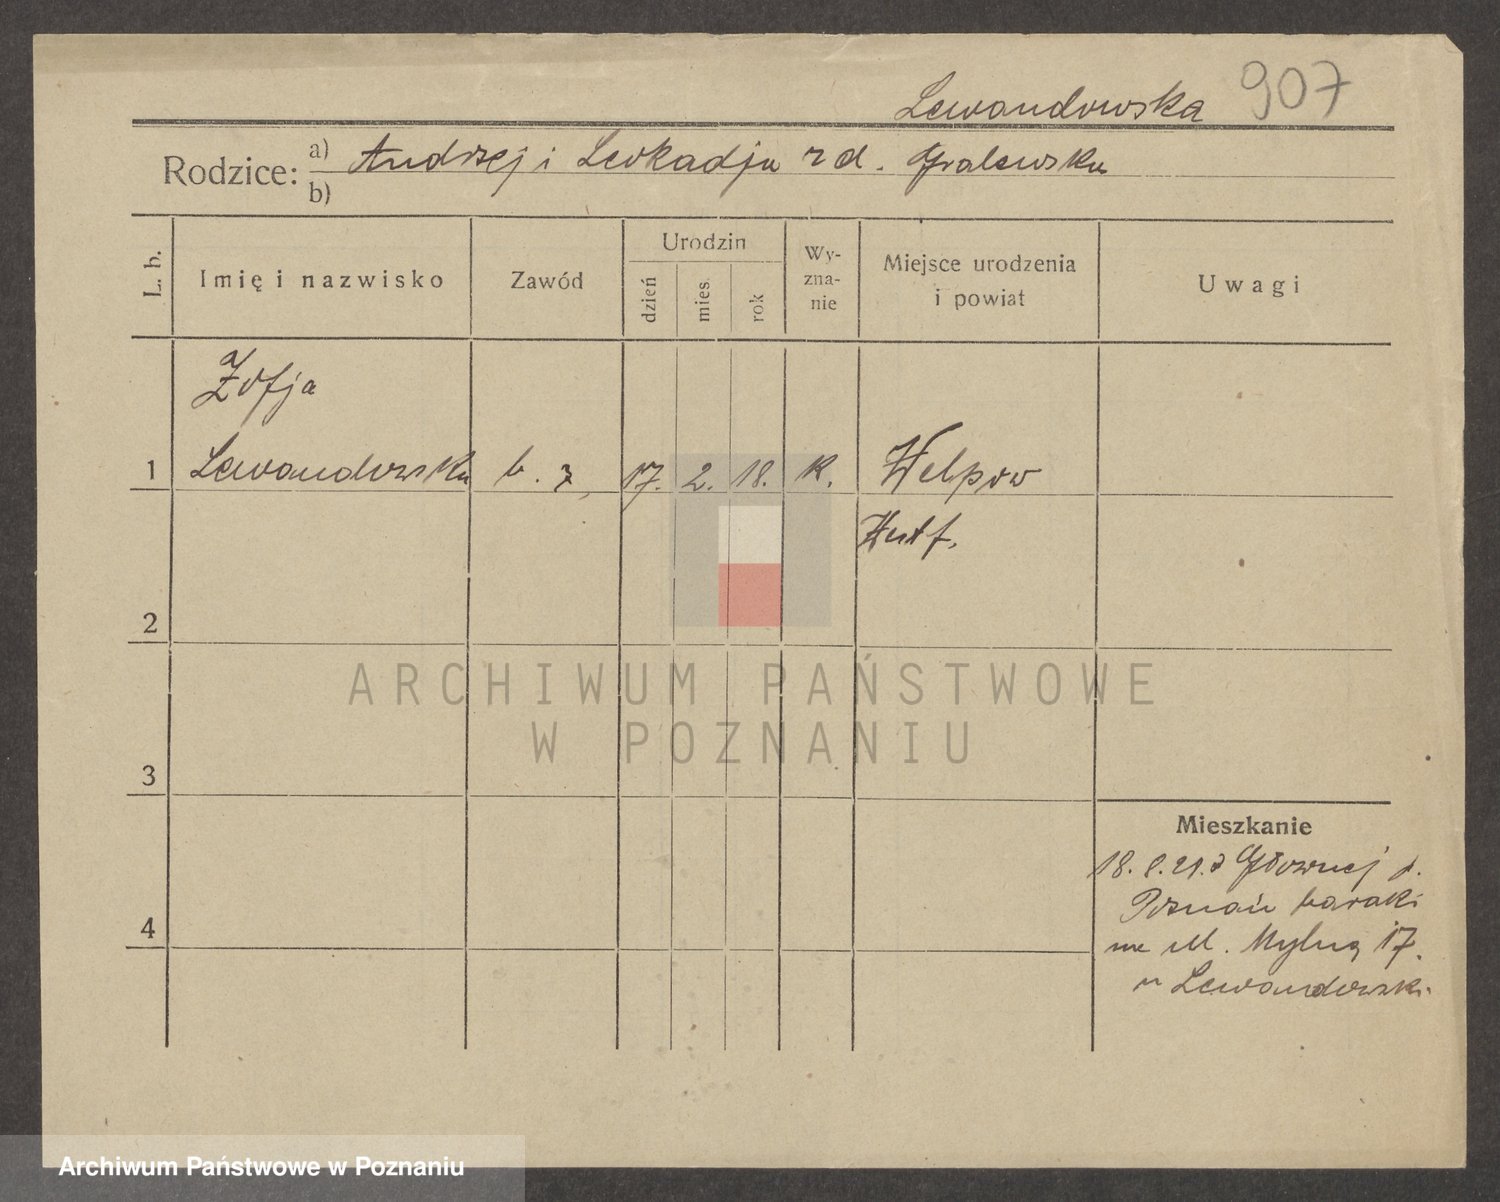 Lewandowska 907
Rodzice: a) Andrzej i Leokadja z d. Gralewska
b)
L. b.
Imię i nazwisko
Zawód
Urodzin
dzień
mies.
rok
Wy-
zna-
nie
Miejsce urodzenia
i powiat
Uwagi
Zofja
1 Lewandowska b. z. 17. 2. 18. K.
Westf.
2
ARCHIWUM PAŃSTWOWE
W POZNANIU
3
Mieszkanie
18. 8. 21. z Głównej p.
Poznań baraki
4
na ul. Mylną 17.
u Lewandowski
Archiwum Państwowe w Poznaniu